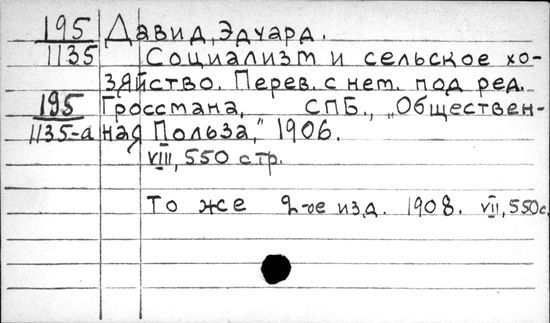 195 Давид, Эдуард.
1135 Социализм и сельское хо-
зяйство. Перев. с нем. под ред.
195 Гроссмана, СПБ., „Обществен-
1135-а ная Польза," 1906.
VIII, 550 стр.
То же 2-ое изд. 1908. VII, 550 с.